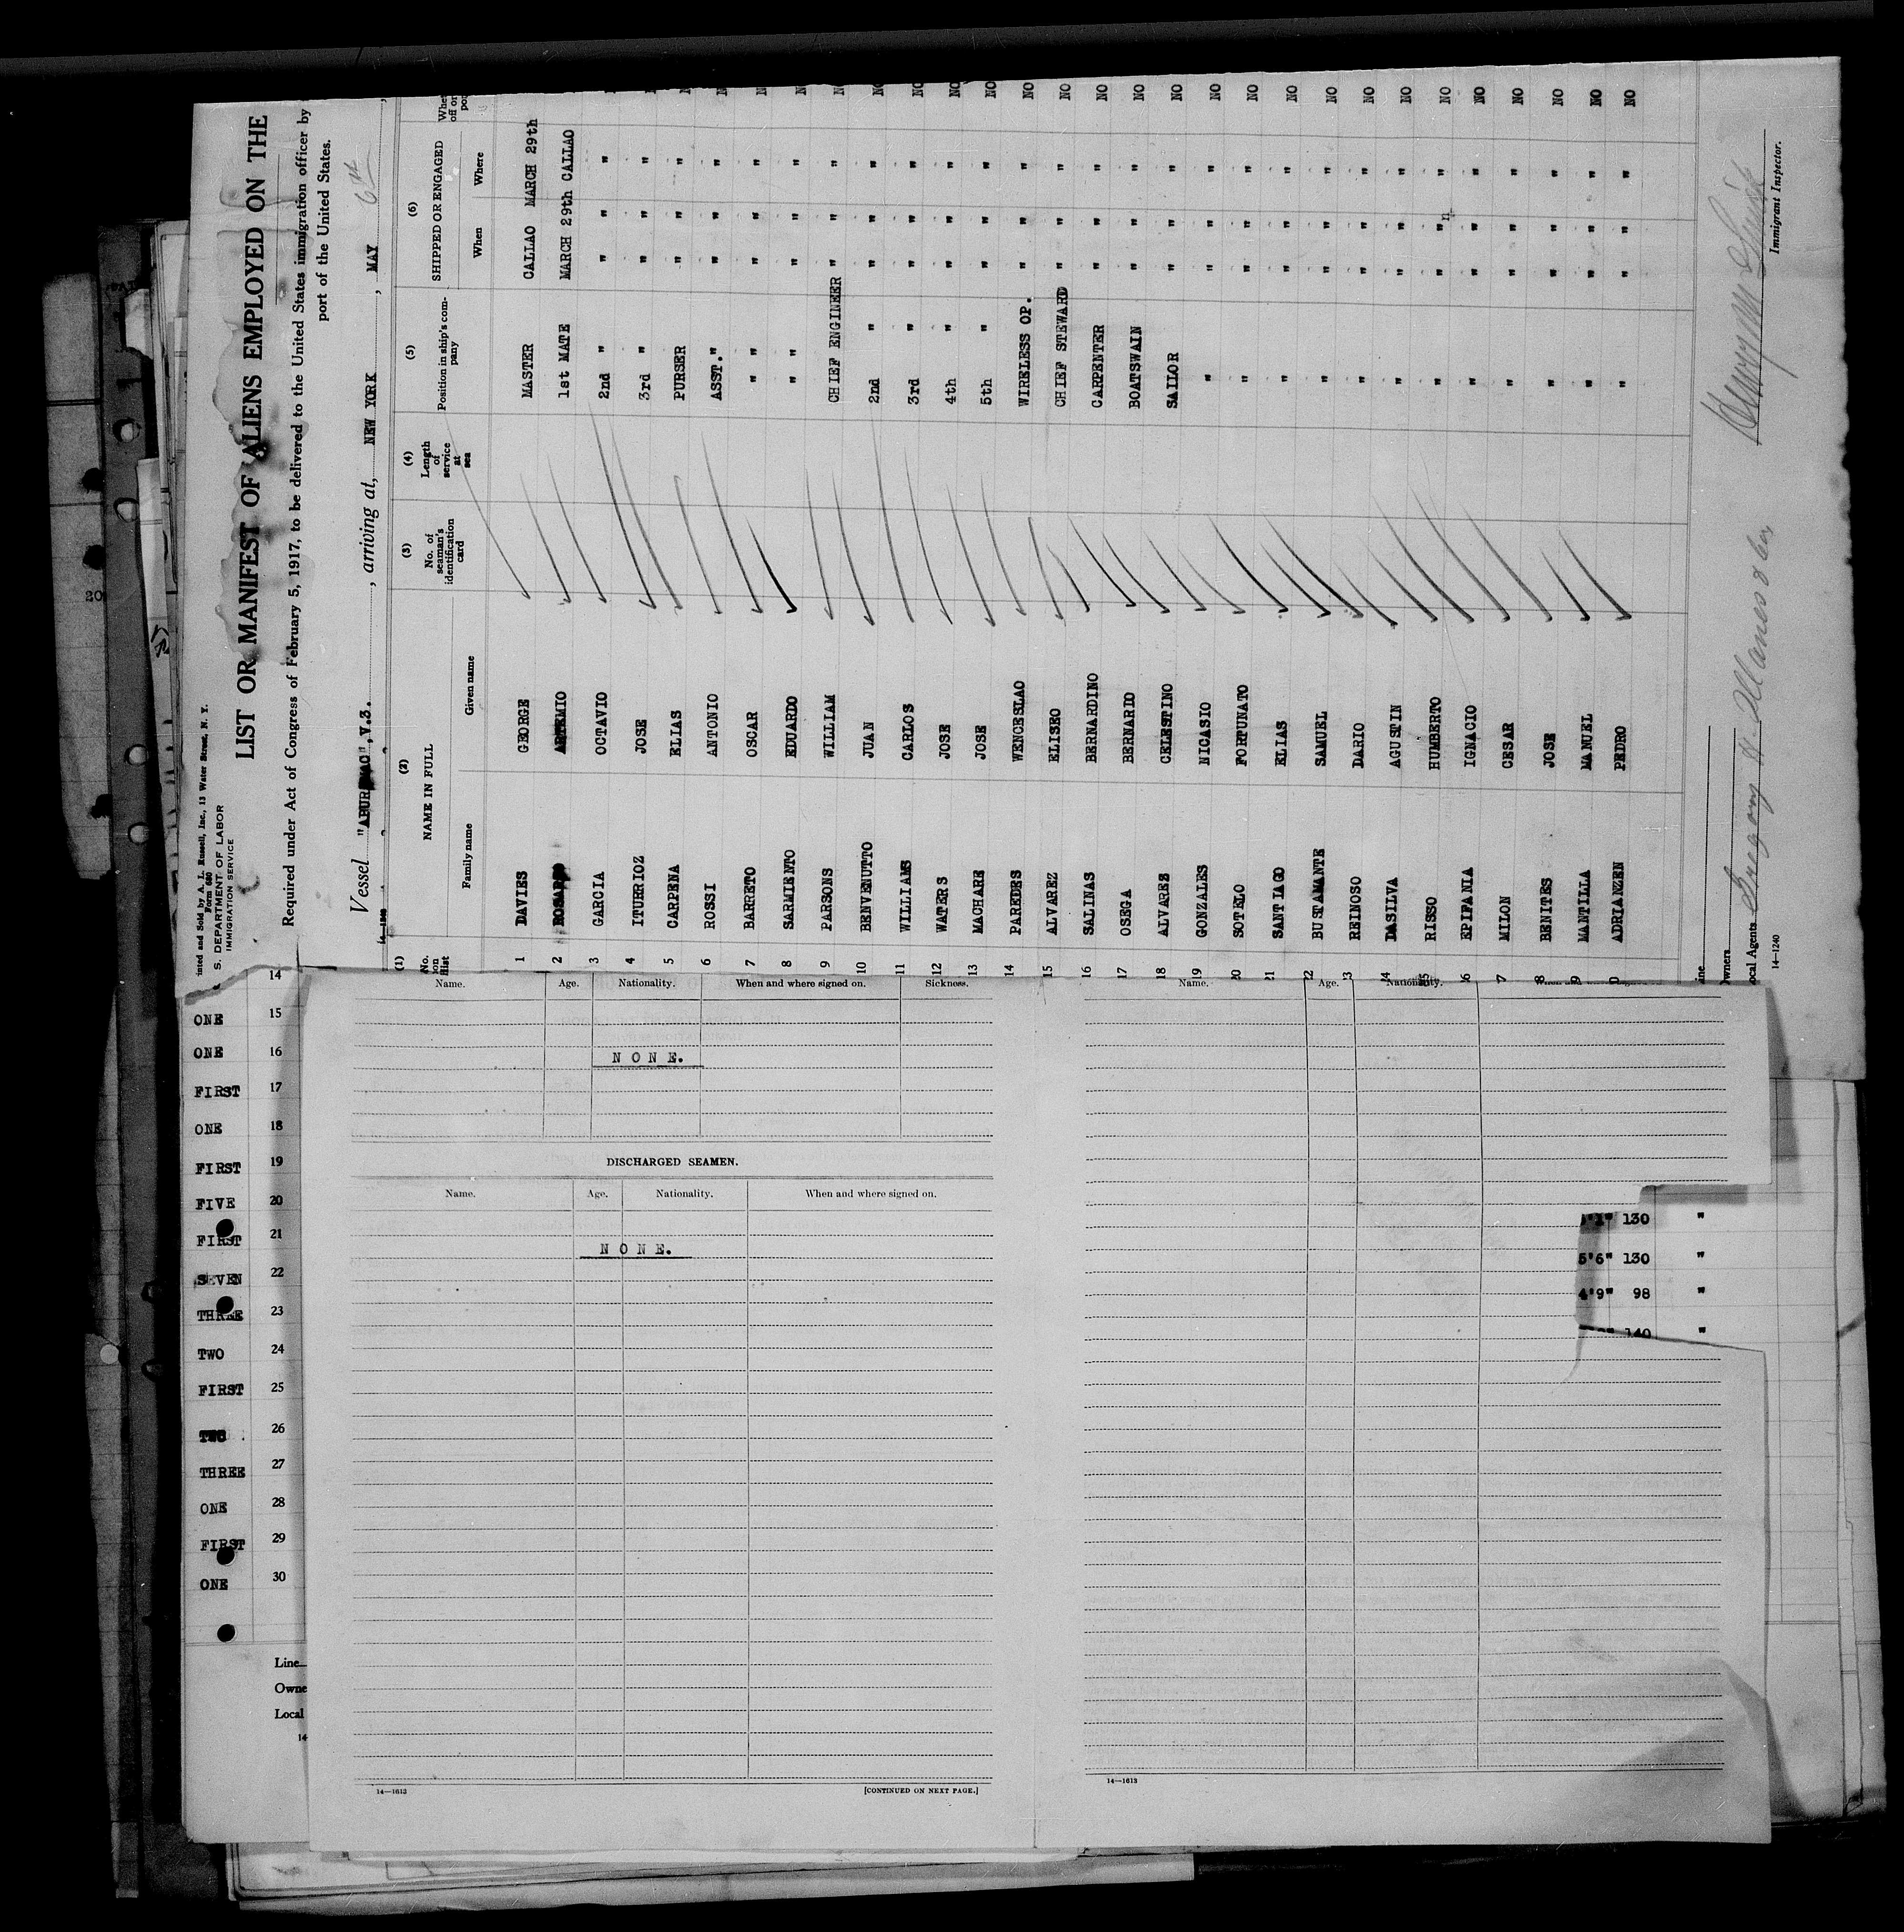 inted and Sold by A. L. Russell, Inc., 13 Water Street, N. Y.
Form 680
S. DEPARTMENT OF LABOR
IMMIGRATION SERVICE
LIST OR MANIFEST OF ALIENS EMPLOYED ON THE
Required under Act of Congress of February 5, 1917, to be delivered to the United States immigration officer by
port of the United States.
Vessel "ABURIMAC",V.3. , arriving at, NEW YORK , MAY 6th ,
14-1240
(1) (2) (3) (4) (5) (6)
No. on list NAME IN FULL No. of seaman's identification card Length of service at sea Position in ship's company SHIPPED OR ENGAGED
Family name Given name When Where
1 DAVIES GEORGE MASTER CALLAO MARCH 29th
2 ROSARIO ARTEMIO 1st MATE MARCH 29th CALLAO
3 GARCIA OCTAVIO 2nd " " " " N
4 ITURRIOZ JOSE 3rd " " " " N
5 CARPENA ELIAS PURSER " " " N
6 ROSSI ANTONIO ASST." " " " N
7 BARRETO OSCAR " " " " " N
8 SARMIENTO EDUARDO " " " " " N
9 PARSONS WILLIAM CHIEF ENGINEER " " " NO
10 BENVENUTTO JUAN 2nd " " " " NO
11 WILLIAMS CARLOS 3rd " " " " NO
12 WATERS JOSE 4th " " " " NO
13 MACHARE JOSE 5th " " " " NO
14 PAREDES WENCESLAO WIRELESS OP. " " " NO
15 ALVAREZ ELISEO CHIEF STEWARD " " " NO
16 SALINAS BERNARDINO CARPENTER " " " NO
17 OSEGA BERNARDO BOATSWAIN " " " NO
18 ALVAREZ CELESTINO SAILOR " " " NO
19 GONZALES NICASIO " " " " NO
20 SOTELO FORTUNATO " " " " NO
21 SANTIAGO ELIAS " " " " NO
22 BUSTAMANTE SAMUEL " " " " NO
23 REINOSO DARIO " " " " NO
24 DASILVA AGUSTIN " " " " NO
25 RISSO HUMBERTO " " " " NO
26 EPIFANIA IGNACIO " " " " NO
7 MILON CESAR " " " " NO
8 BENITES JOSE " " " " NO
9 MANTILLA MANUEL " " " " NO
0 ADRIANZEN PEDRO " " " " NO
ine
Owners
ocal Agents
14-1240
Immigrant Inspector.
14
ONE 15
ONE 16
FIRST 17
ONE 18
FIRST 19
FIVE 20
FIRST 21
SEVEN 22
THREE 23
TWO 24
FIRST 25
TWO 26
THREE 27
ONE 28
FIRST 29
ONE 30
Line
Owne
Local
14
Name. Age. Nationality. When and where signed on. Sickness.
NONE.
DISCHARGED SEAMEN.
Name. Age. Nationality. When and where signed on.
NONE.
14-1612
[CONTINUED ON NEXT PAGE.]
Name. Age. Nationality.
130 "
5'6" 130 "
4'9" 98 "
140 "
14-1613